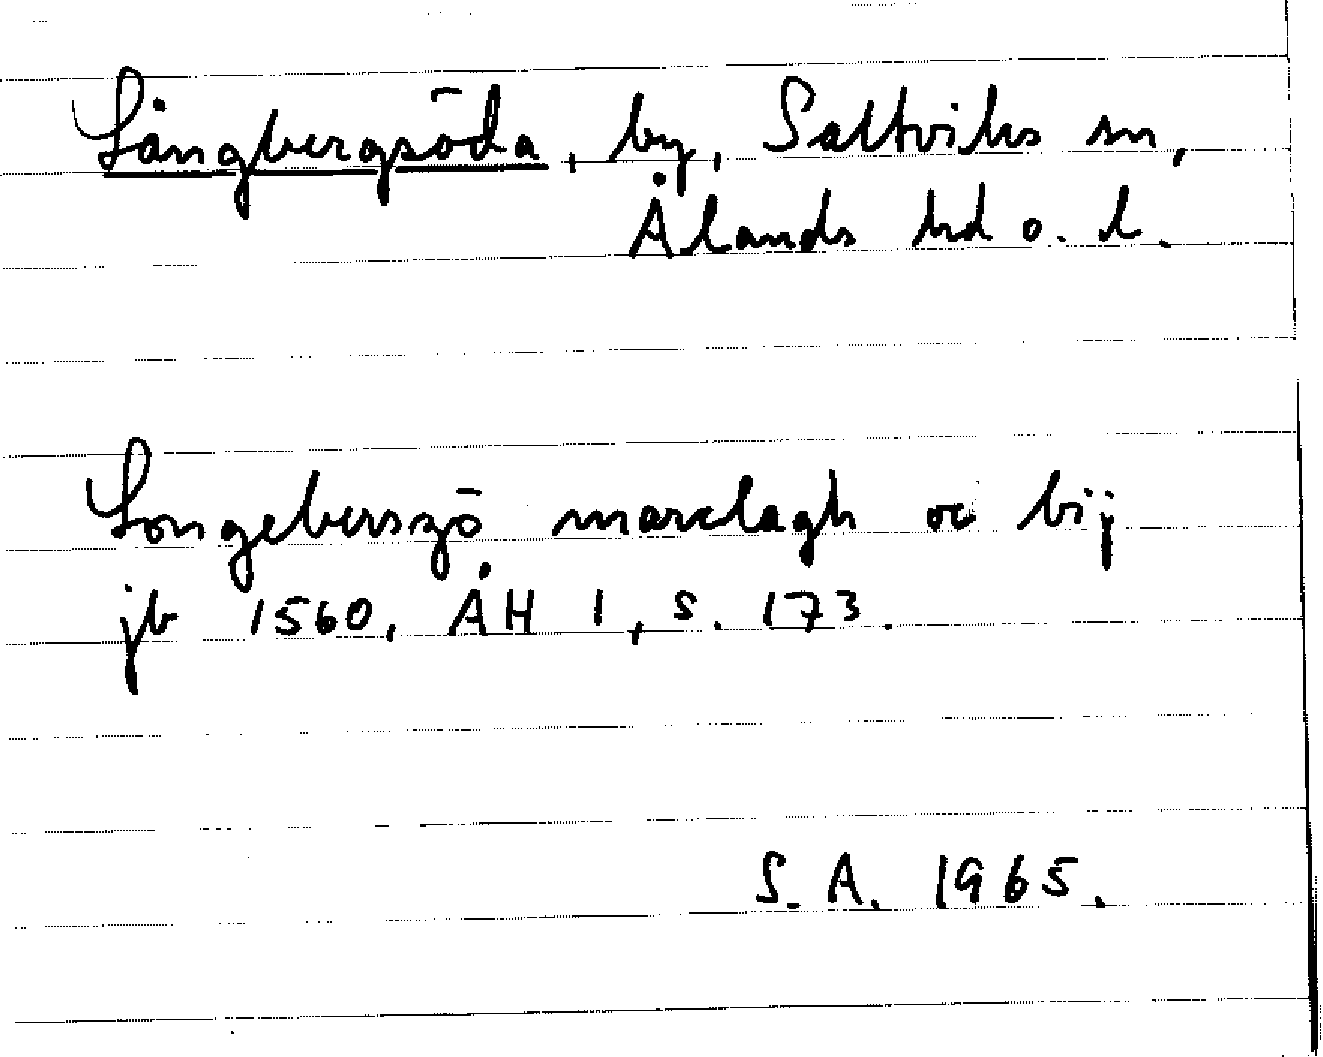 Långbergsöda, by, Saltviks sn,
Ålands hd o. l.
Longeberszö marclagh oc bij
jb 1560, ÅH 1, s. 173.
S. A. 1965.